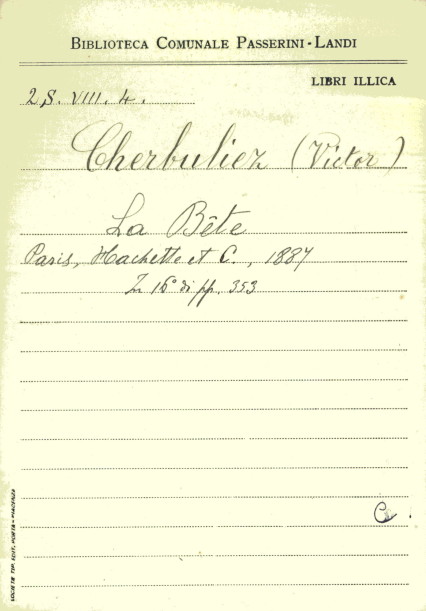 BIBLIOTECA COMUNALE PASSERINI-LANDI
LIBRI ILLICA
2 S. VIII. 4.
Cherbuliez (Victor)
La Bête
Paris, Hachette et C., 1887
In 16° di pp. 353